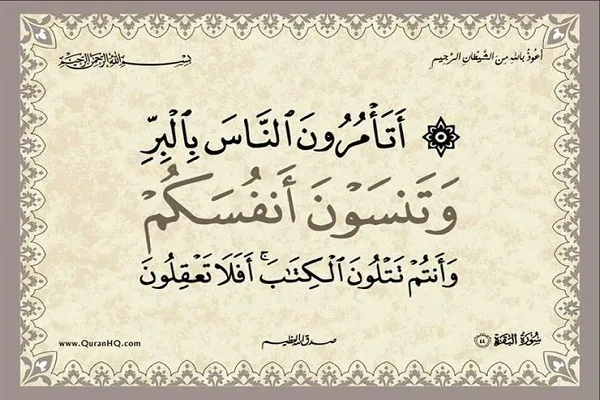 أعوذ بالله من الشيطان الرجيم
بسم الله الرحمن الرحيم
۞ أَتَأْمُرُونَ ٱلنَّاسَ بِٱلْبِرِّ
وَتَنسَوْنَ أَنفُسَكُمْ
وَأَنتُمْ تَتْلُونَ ٱلْكِتَٰبَ ۚ أَفَلَا تَعْقِلُونَ
سورة البقرة ٤٤
صدق الله العظيم
www.QuranHQ.com